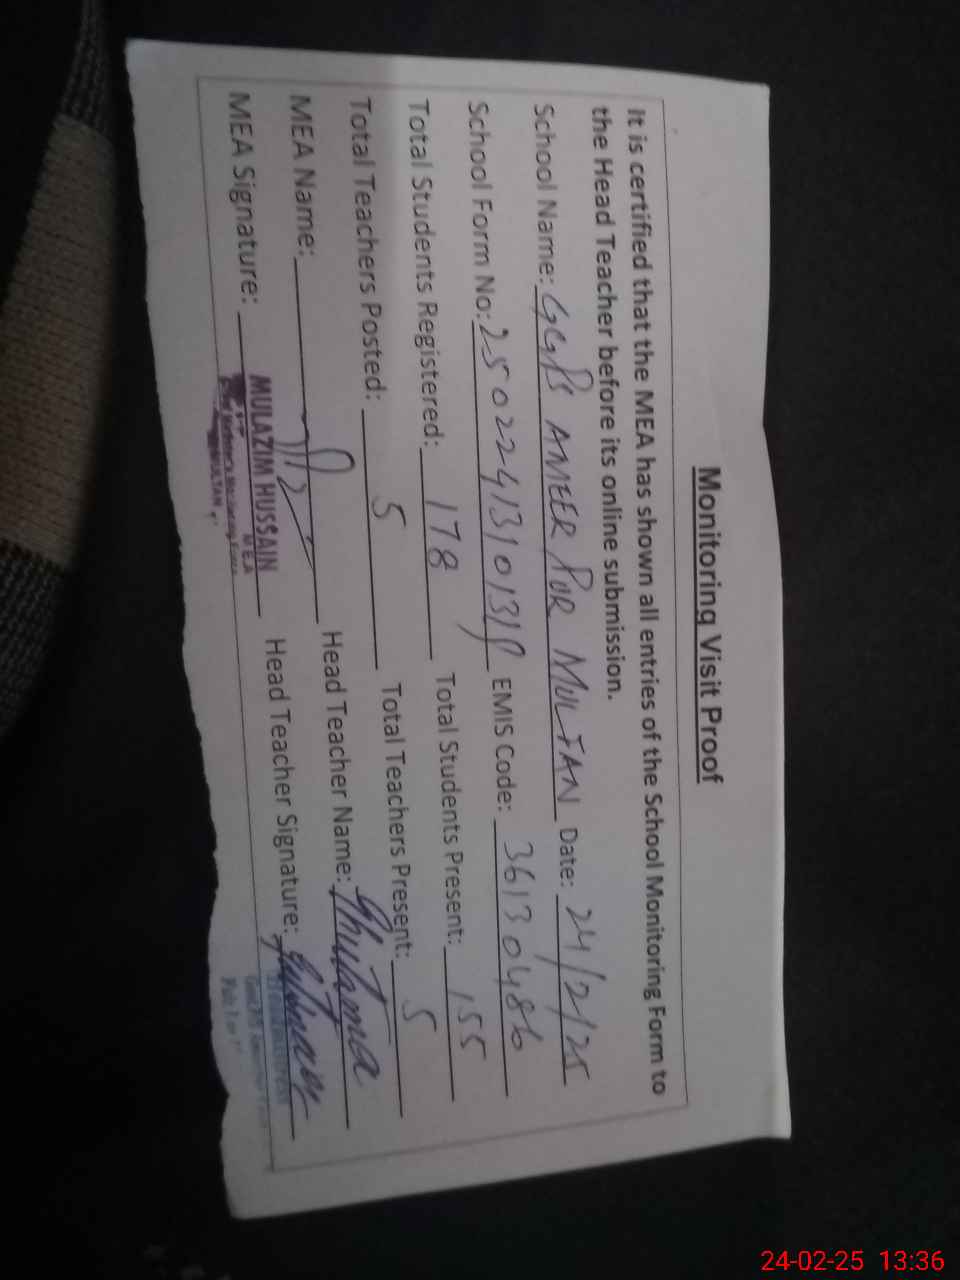 Monitoring Visit Proof
It is certified that the MEA has shown all entries of the School Monitoring Form to
the Head Teacher before its online submission.
School Name: GGPS AMEER PUR MULTAN Date: 24/2/25
School Form No: EMIS Code: 36130486
Total Students Registered: 178 Total Students Present: 155
Total Teachers Posted: 5 Total Teachers Present: 5
MEA Name: Head Teacher Name:
MEA Signature: Head Teacher Signature:
MULAZIM HUSSAIN
MEA
MULTAN
24-02-25 13:36